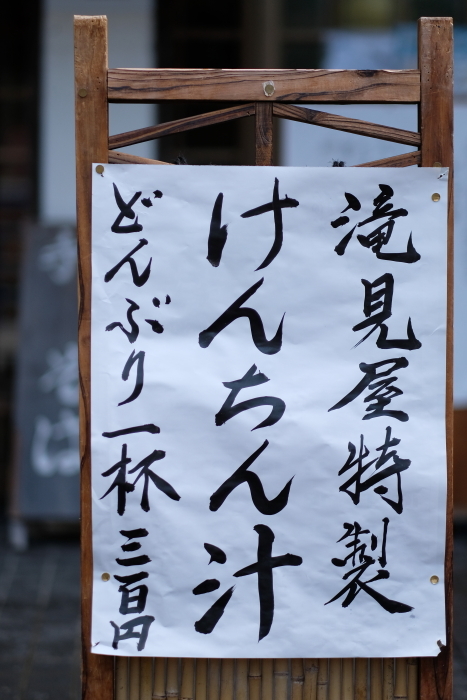 滝見屋特製
けんちん汁
どんぶり一杯三百円